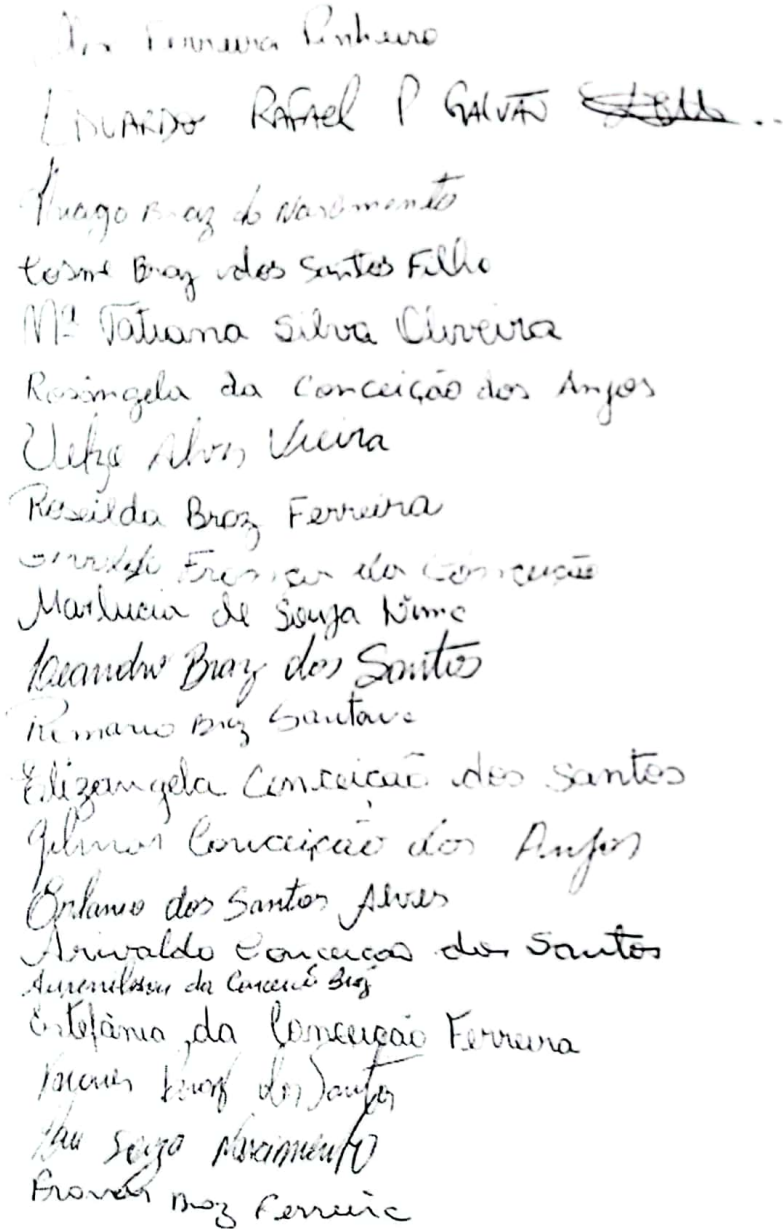 Ferreira Pinheiro
EDUARDO RAFAEL P GALVÃO
Thiago Braz do Nascimento
Cosme Braz dos Santos Filho
Mª Tatiana Silva Oliveira
Rosângela da Conceição dos Anjos
Alves Vieira
Roseilda Braz Ferreira
da Conceição
Marlucia de Souza
Leandro Braz dos Santos
Romario Braz Santana
Elizangela Conceição dos Santos
Gilmar Conceição dos Anjos
dos Santos Alves
Arivaldo Conceição dos Santos
da Braz
Estefânia da Conceição Ferreira
dos Santos
Souza Nascimento
Braz Ferreira